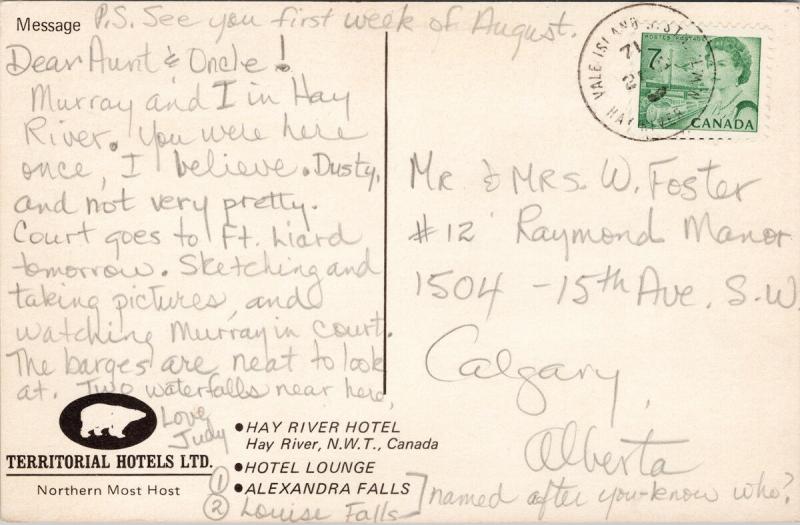 Message
P.S. See you first week of August.
Dear Aunt & Oncle!
Murray and I in Hay
River. You were here
once, I believe. Dusty,
and not very pretty.
Court goes to Ft. Liard
tomorrow. Sketching and
taking pictures, and
watching Murray in court.
The barges are neat to look
at. Two waterfalls near here,
Love
Judy
TERRITORIAL HOTELS LTD.
Northern Most Host
•HAY RIVER HOTEL
Hay River, N.W.T., Canada
•HOTEL LOUNGE
① •ALEXANDRA FALLS
② Louise Falls
named after you-know who?
VALE ISLAND
HAY RIVER
POSTES POSTAGE
2
CANADA
Mr & Mrs. W. Foster
#12 Raymond Manor
1504 - 15th Ave. S.W.
Calgary,
Alberta